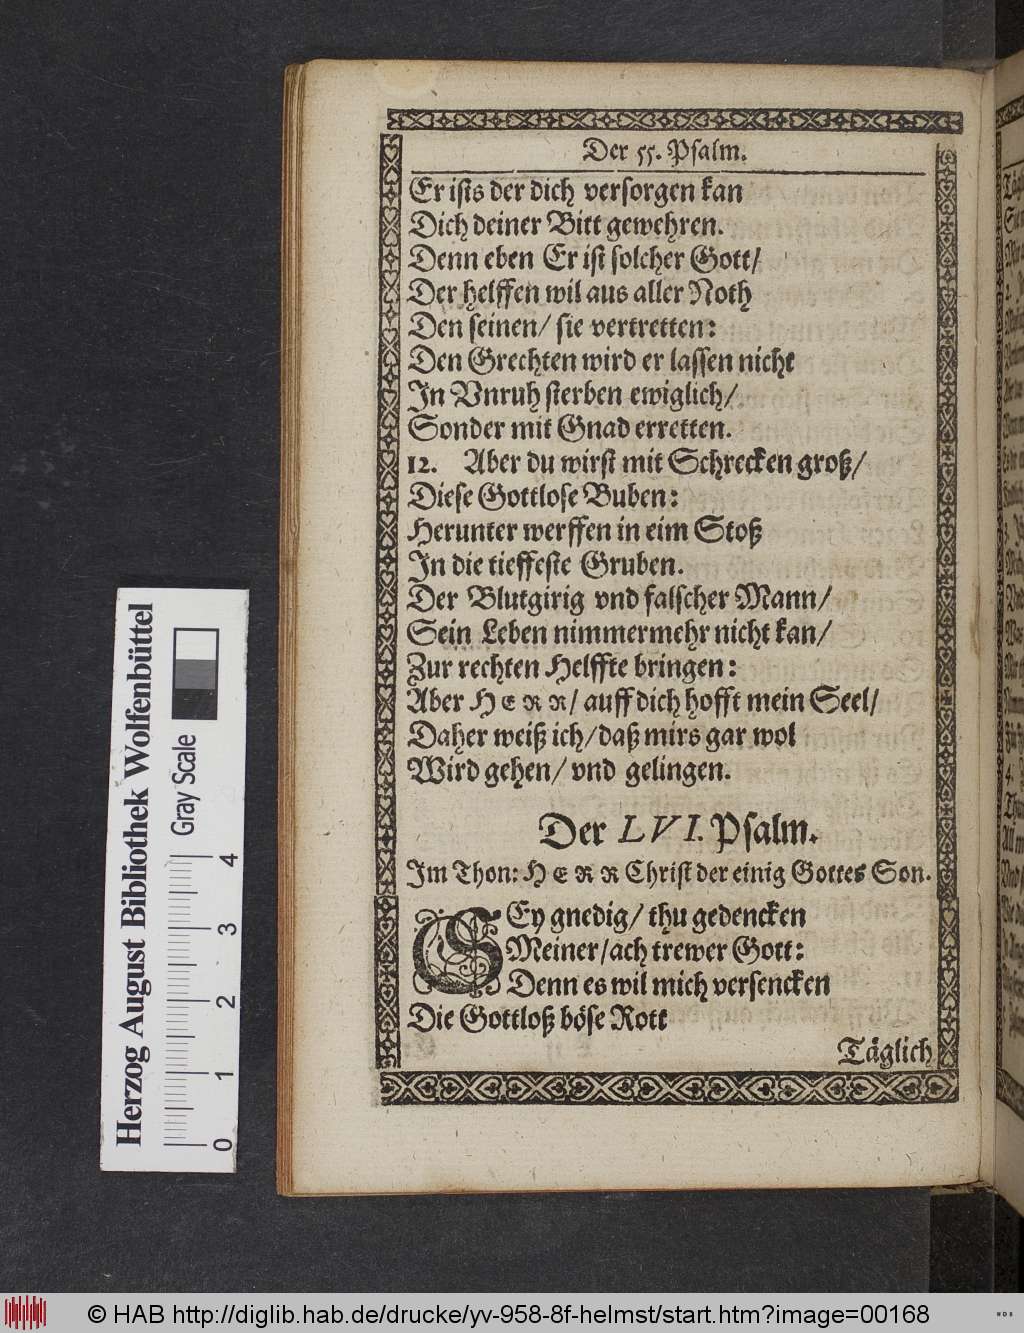 Der 55. Psalm.
Er ists der dich versorgen kan
Dich deiner Bitt gewehren.
Denn eben Er ist solcher Gott/
Der helffen wil aus aller Noth
Den seinen/ sie vertretten:
Den Grechten wird er lassen nicht
In Vnruh sterben ewiglich/
Sonder mit Gnad erretten.
12. Aber du wirst mit Schrecken groß/
Diese Gottlose Buben:
Herunter werffen in eim Stoß
In die tieffeste Gruben.
Der Blutgirig vnd falscher Mann/
Sein Leben nimmermehr nicht kan/
Zur rechten Helffte bringen:
Aber HERR/ auff dich hofft mein Seel/
Daher weiß ich/ daß mirs gar wol
Wird gehen/ vnd gelingen.
Der LVI. Psalm.
Im Thon: HERR Christ der einig Gottes Son.
SEy gnedig/ thu gedencken
Meiner/ ach trewer Gott:
Denn es wil mich versencken
Die Gottloß böse Rott
Täglich
Herzog August Bibliothek Wolfenbüttel
Gray Scale
0 1 2 3 4
© HAB http://diglib.hab.de/drucke/yv-958-8f-helmst/start.htm?image=00168